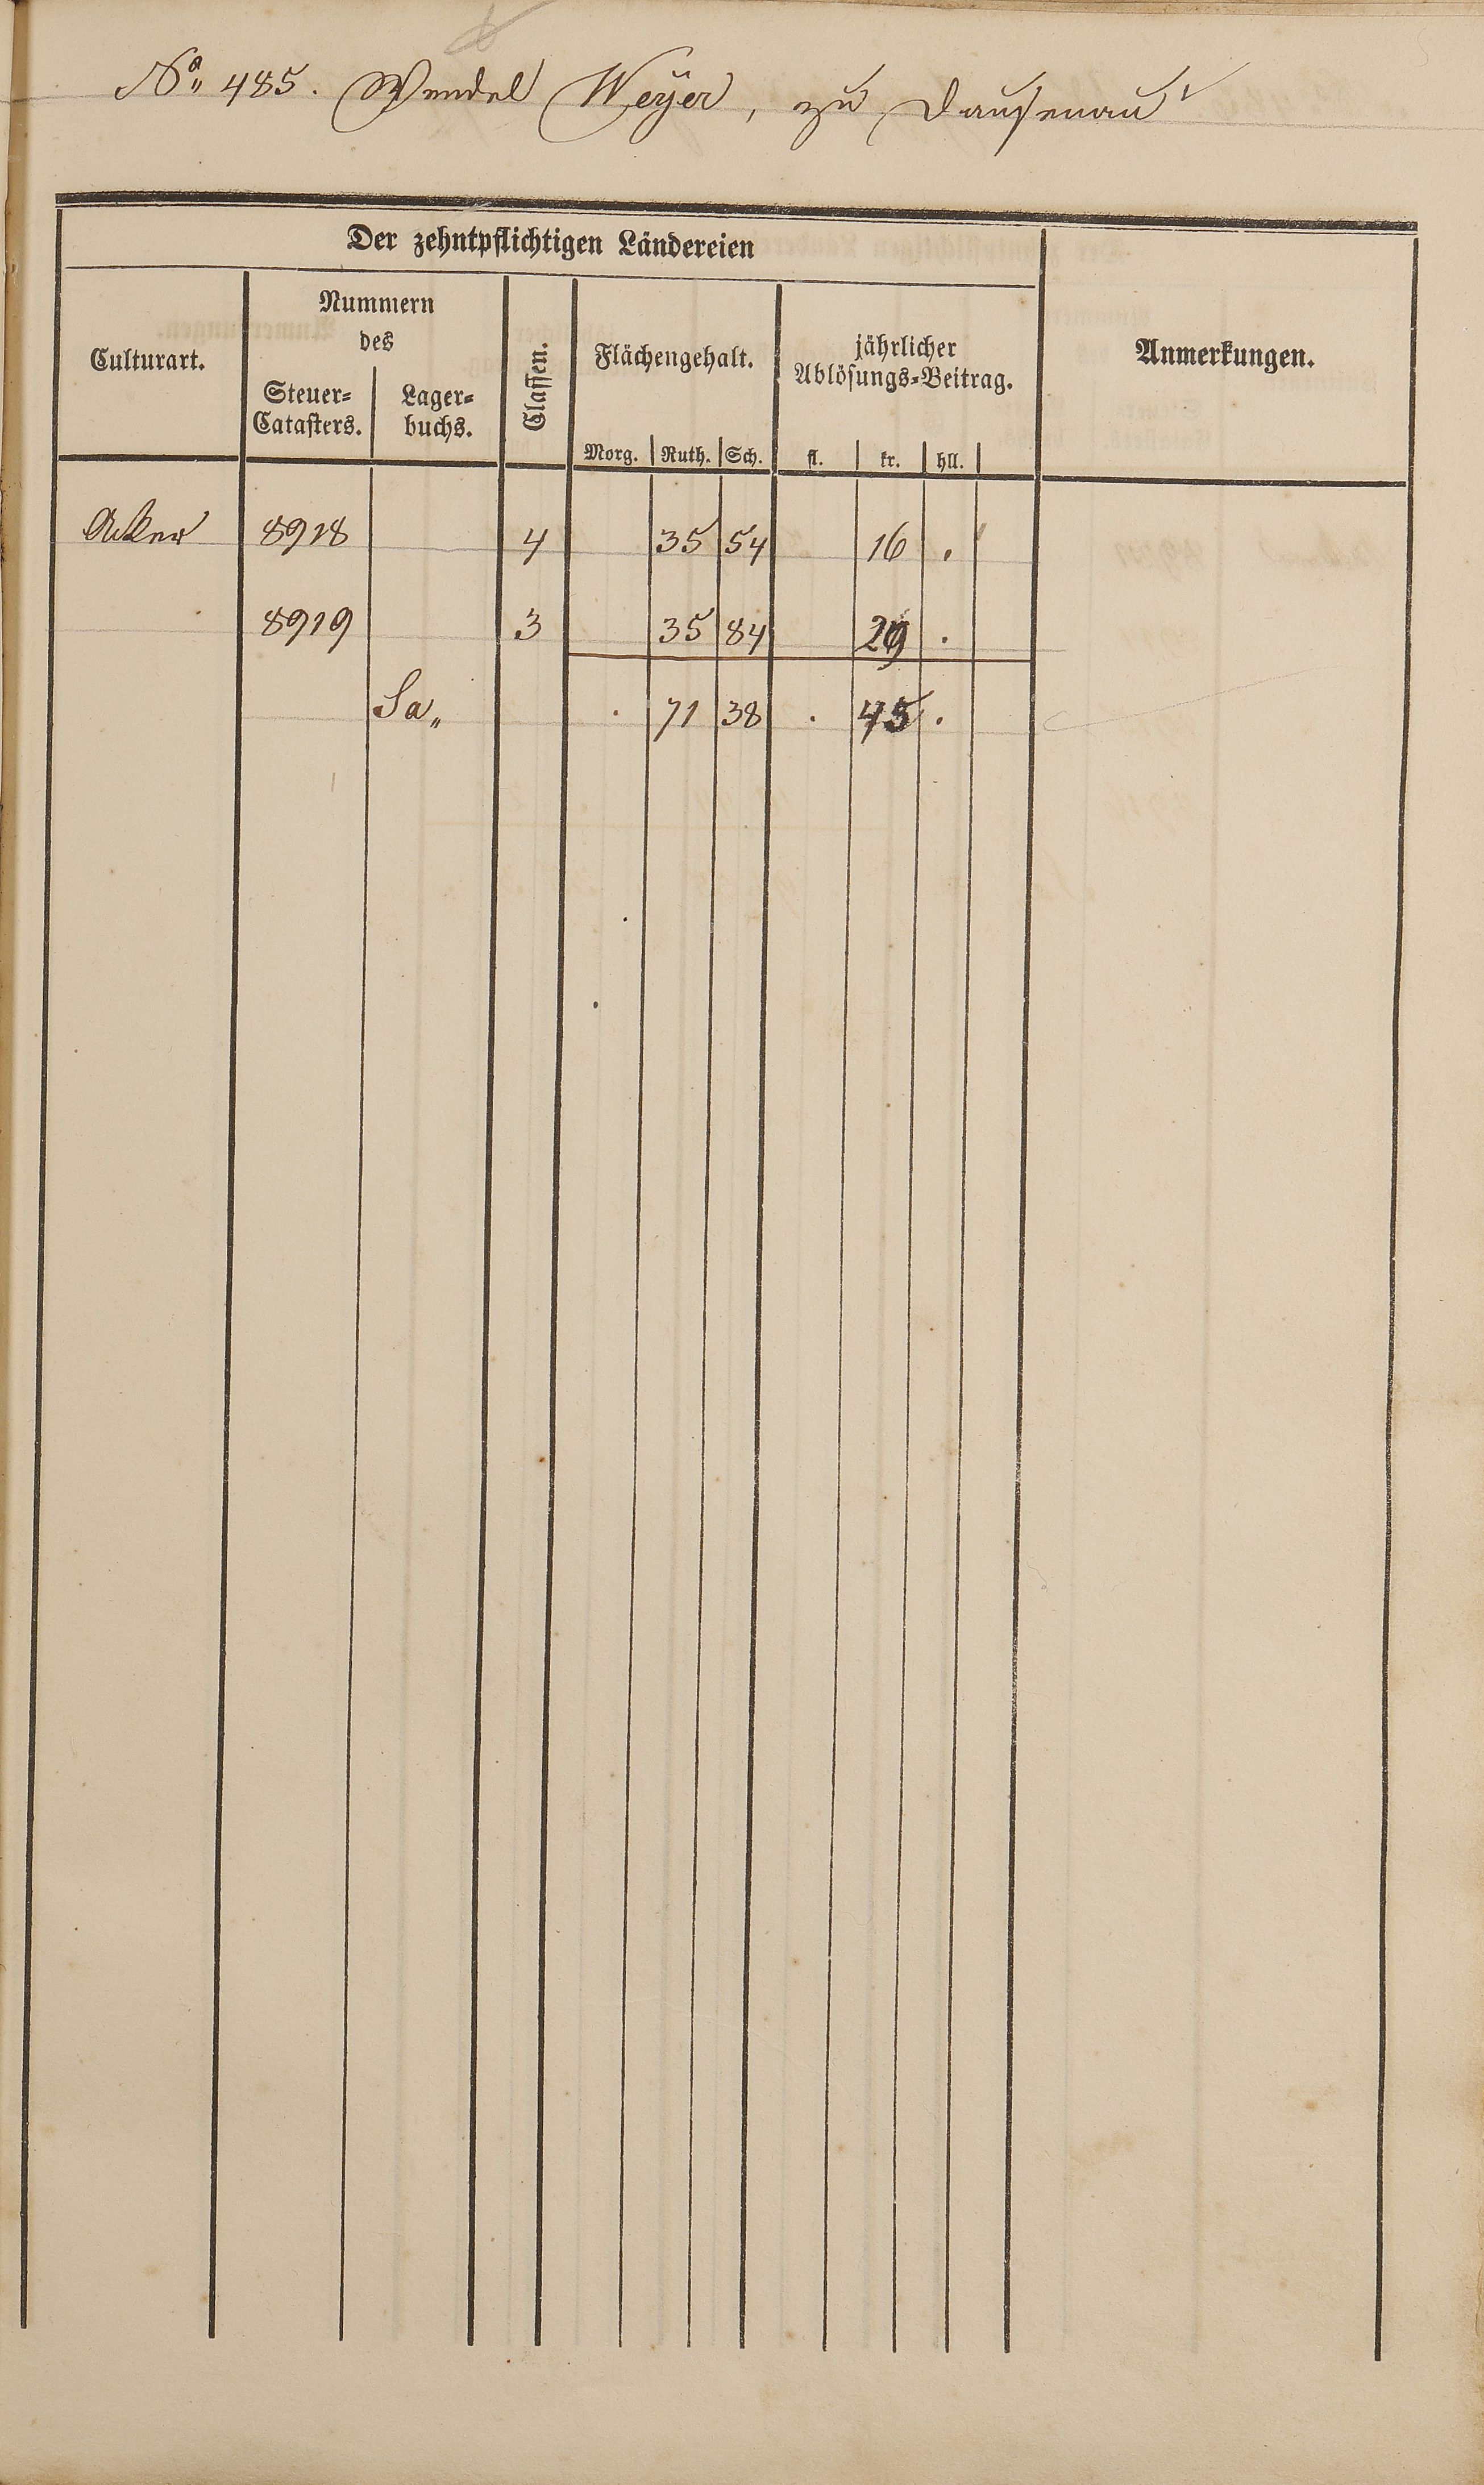 No. 485. Wendel Weÿer, zu Dausenau
Der zehntpflichtigen Ländereien
Culturart.
Nummern
des
Steuer-
Catasters.
Lager-
buchs.
Classen.
Flächengehalt.
Morg. Ruth. Sch.
jährlicher
Ablösungs-Beitrag.
fl. kr. hll.
Anmerkungen.
Acker 8918 4 35 54 16 .
8919 3 35 84 29 .
Sa„ . 71 38 . 45 .